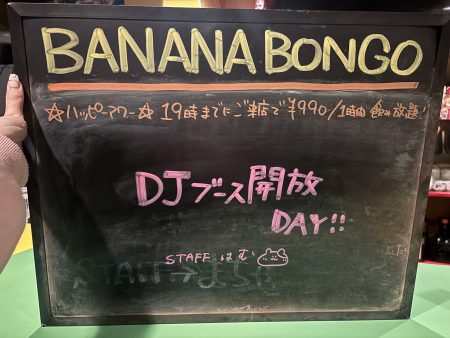 BANANA BONGO
☆ハッピーアワー☆ 19時までにご来店で¥990/1時間 飲み放題!
DJブース開放
DAY!!
STAFF はむ